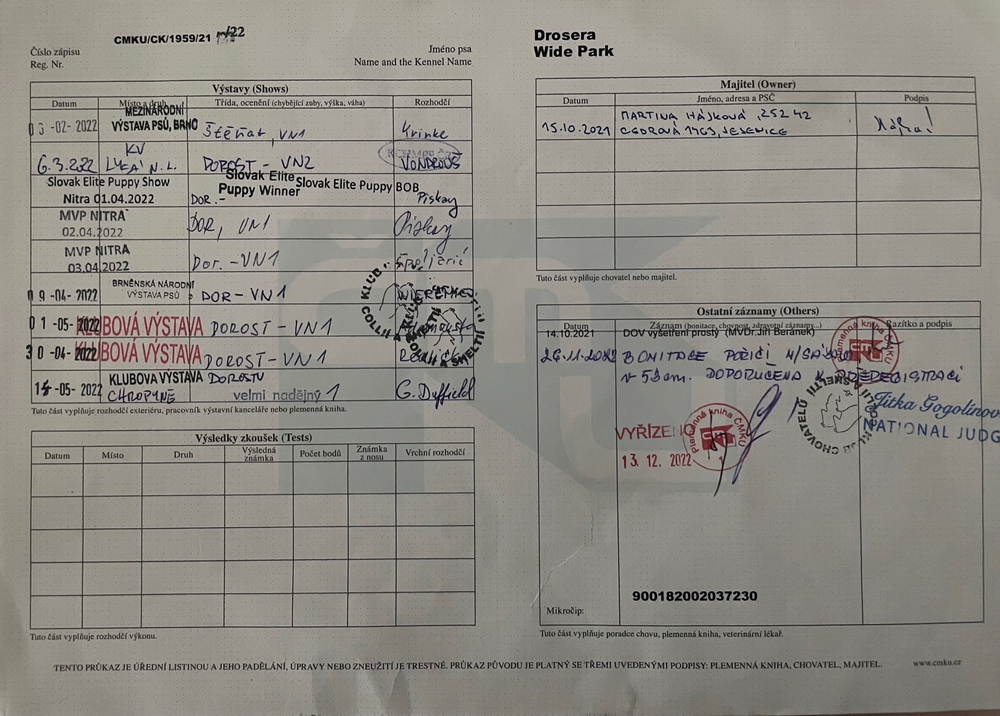 CMKU/CK/1959/21
Číslo zápisu
Reg. Nr.
Jméno psa
Name and the Kennel Name
Drosera
Wide Park
Výstavy (Shows)
Datum Místo a druh Třída, ocenění (chybějící zuby, výška, váha) Rozhodčí
05 -02- 2022 MEZINÁRODNÍ VÝSTAVA PSŮ, BRNO VN1 Krinke
6.3.2022 KV N.L. DOROST - VN2 VONDROUŠ
Slovak Elite Puppy Show
Nitra 01.04.2022 DOR.- Slovak Elite Puppy Winner Slovak Elite Puppy BOB Piskay
MVP NITRA
02.04.2022 DOR, VN1 Piskay
MVP NITRA
03.04.2022 Dor. - VN1
09 -04- 2022 BRNĚNSKÁ NÁRODNÍ VÝSTAVA PSŮ DOR - VN1
01 -05- 2022 KLUBOVÁ VÝSTAVA DOROST - VN1
30 -04- 2022 KLUBOVÁ VÝSTAVA DOROST - VN1
-05- 2022 KLUBOVA VÝSTAVA CHROPYNE DOROSTU velmi nadějný 1 G. Duffield
Tuto část vyplňuje rozhodčí exteriéru, pracovník výstavní kanceláře nebo plemenná kniha.
Výsledky zkoušek (Tests)
Datum Místo Druh Výsledná známka Počet bodů Známka z nosu Vrchní rozhodčí
Tuto část vyplňuje rozhodčí výkonu.
Majitel (Owner)
Datum Jméno, adresa a PSČ Podpis
15.10.2021 MARTINA HÁJKOVÁ, 252 42
CEDROVÁ 1463, JESENICE
Tuto část vyplňuje chovatel nebo majitel.
Ostatní záznamy (Others)
Datum Záznam (bonitace, chovnost, zdravotní záznamy...) Razítko a podpis
14.10.2021 DOV vyšetření prostý (MVDr. Jiří Beránek)
26.11.2022 BONITACE
v 53cm. DOPORUČENA K PŘEREGISTRACI
Plemenná kniha ČMKU
NATIONAL JUDG
VYŘÍZENO
13. 12. 2022
Plemenná kniha ČMKU
1
Mikročip: 900182002037230
Tuto část vyplňuje poradce chovu, plemenná kniha, veterinární lékař.
TENTO PRŮKAZ JE ÚŘEDNÍ LISTINOU A JEHO PADĚLÁNÍ, ÚPRAVY NEBO ZNEUŽITÍ JE TRESTNÉ. PRŮKAZ PŮVODU JE PLATNÝ SE TŘEMI UVEDENÝMI PODPISY: PLEMENNÁ KNIHA, CHOVATEL, MAJITEL.
www.cmku.cz